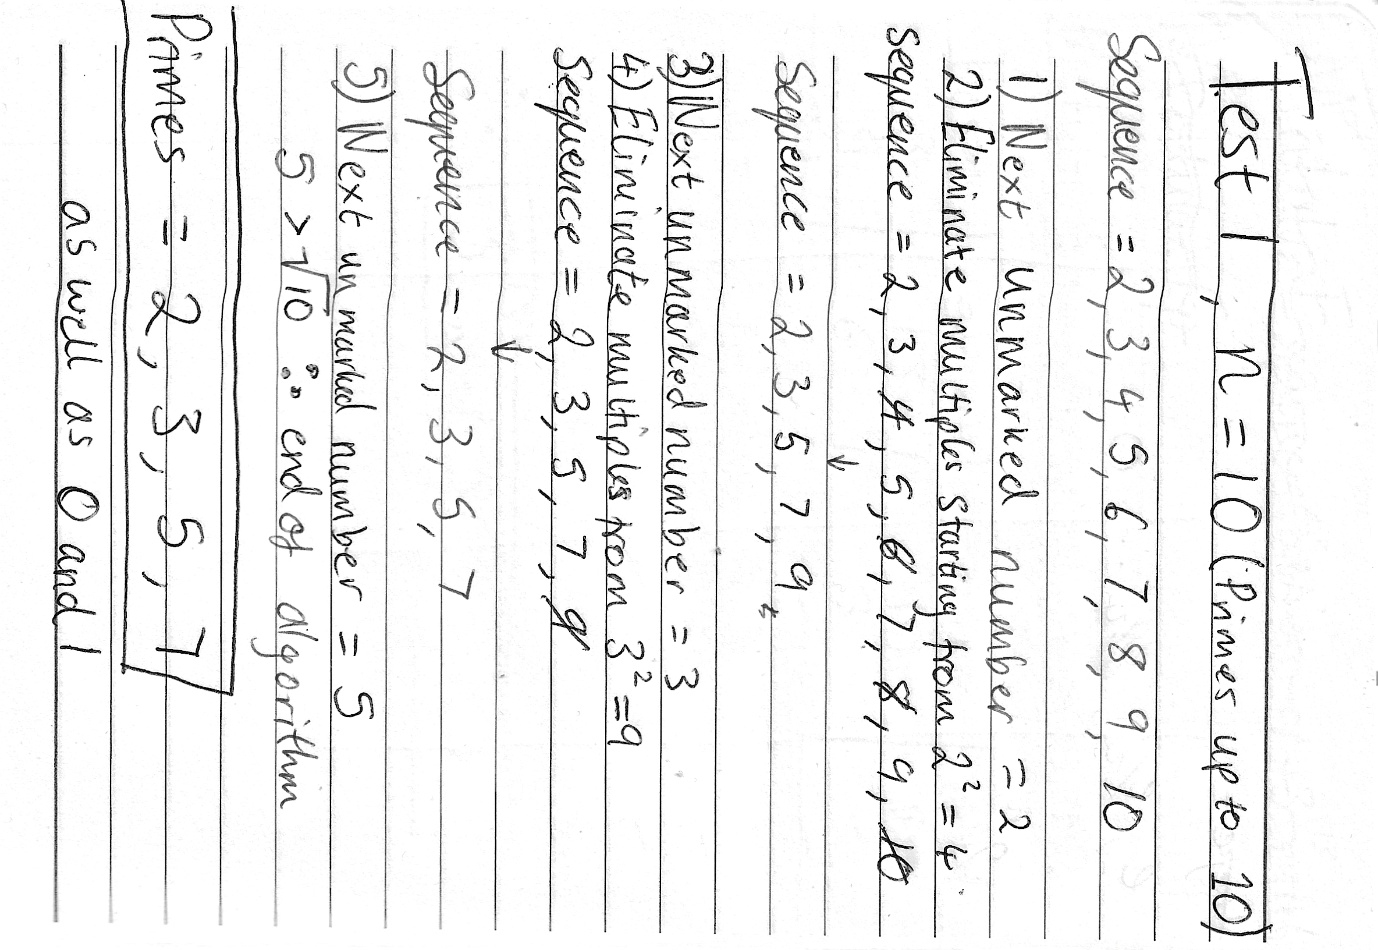 Test 1, n = 10 (Primes up to 10)
Sequence = 2, 3, 4, 5, 6, 7, 8, 9, 10
1) Next unmarked number = 2
2) Eliminate multiples starting from 2² = 4
Sequence = 2, 3, 4, 5, 6, 7, 8, 9, 10
↓
Sequence = 2, 3, 5, 7, 9,
3) Next unmarked number = 3
4) Eliminate multiples from 3² = 9
Sequence = 2, 3, 5, 7, 9
↓
Sequence = 2, 3, 5, 7
5) Next unmarked number = 5
5 > √10 ∴ end of algorithm
Primes = 2, 3, 5, 7
as well as 0 and 1